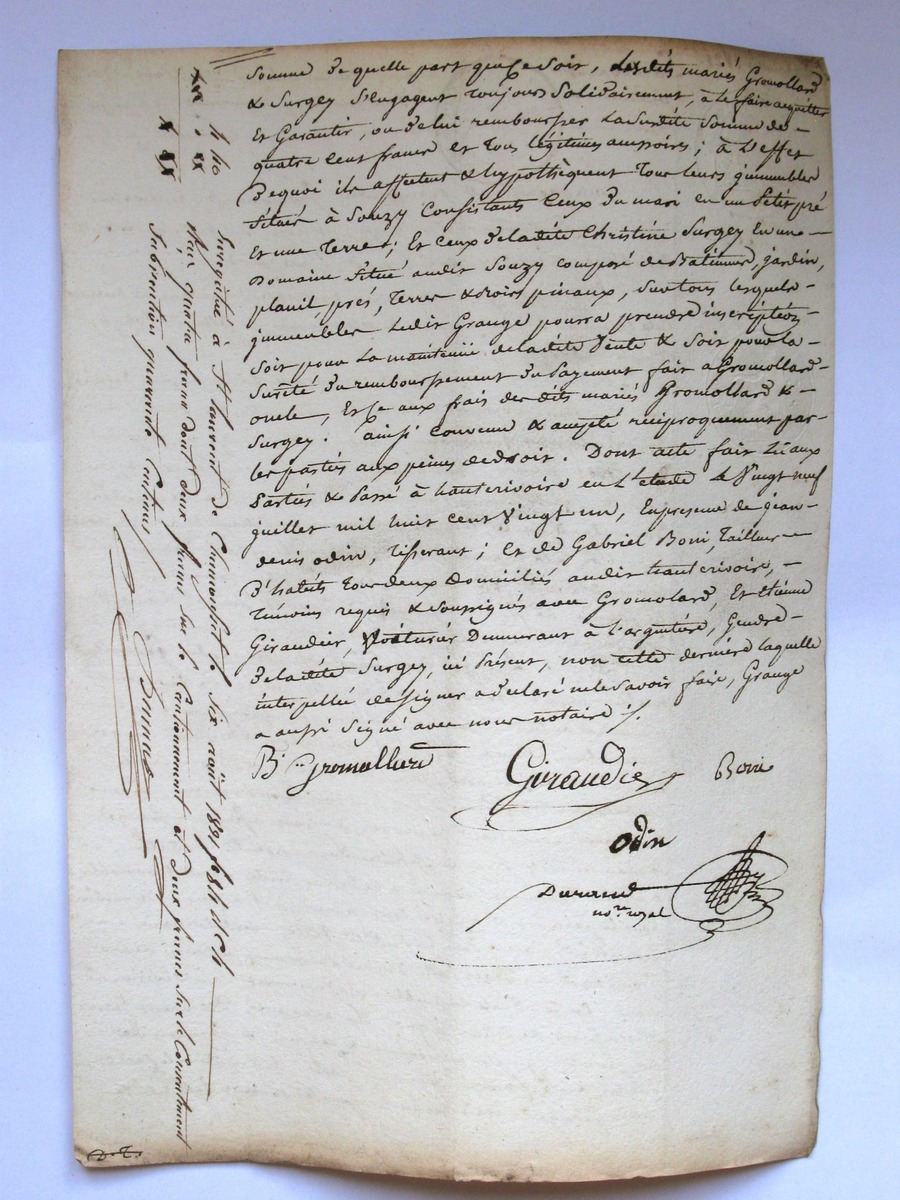 Somme de quelle part que ce soit, Lesdits mariés Gromollard
& Surgey S'engagent toujours Solidairement, à le faire acquitter
Et Garantir, ou de lui rembourser La Susdite Somme de -
quatre Cent francs et tous légitimes accessoires; à L'effet
De quoi ils affectent & hypothèquent Tous leurs immeubles
Situés à Souzy Consistants Ceux du mari en un Petit pré
Et une Terre; Et ceux de ladite Christine Surgey En un -
Domaine Situé audit Souzy composé de Batimens, jardin,
prés, Terres & bois pinaux, Sur tous lesquels -
immeubles Ledit Grange pourra prendre inscription -
Soit pour La maintenüe de ladite Vente & Soit pour la -
Sureté du remboursement Du Payement fait a Gromollard -
oncle, Et ce aux frais des dits mariés Gromollard & -
Surgey. ainsi convenu & accepté réciproquement par -
les parties aux peines de droit. Dont acte fait Lû aux
Parties & Passé à hauterivoire en L'etude Le Vingt neuf
juillet mil huit cent Vingt un, En présence de jean -
denis odin, Tisserant; Et de Gabriel Boni, Tailleur -
D'habits Tous deux Domiciliés audit hauterivoire, -
Témoins requis & Soussignés avec Gromolard, Et Etienne
Giraudier, Voiturier Demeurant à l'argentière, Gendre -
De ladite Surgey, ici Présent, non cette dernière laquelle
interpellée de signer a déclaré ne le Savoir faire, Grange
a aussi Signé avec nous notaire ./.
Giraudier Boni
Odin
Durand
no.re royal
4 40
Enregistré à St Laurent de Chamousset le Six août 1821 fo 84 c h
Reçu quatre francs dont deux francs sur le Cautionnement et Deux francs Sur le
Subvention quarante Centimes